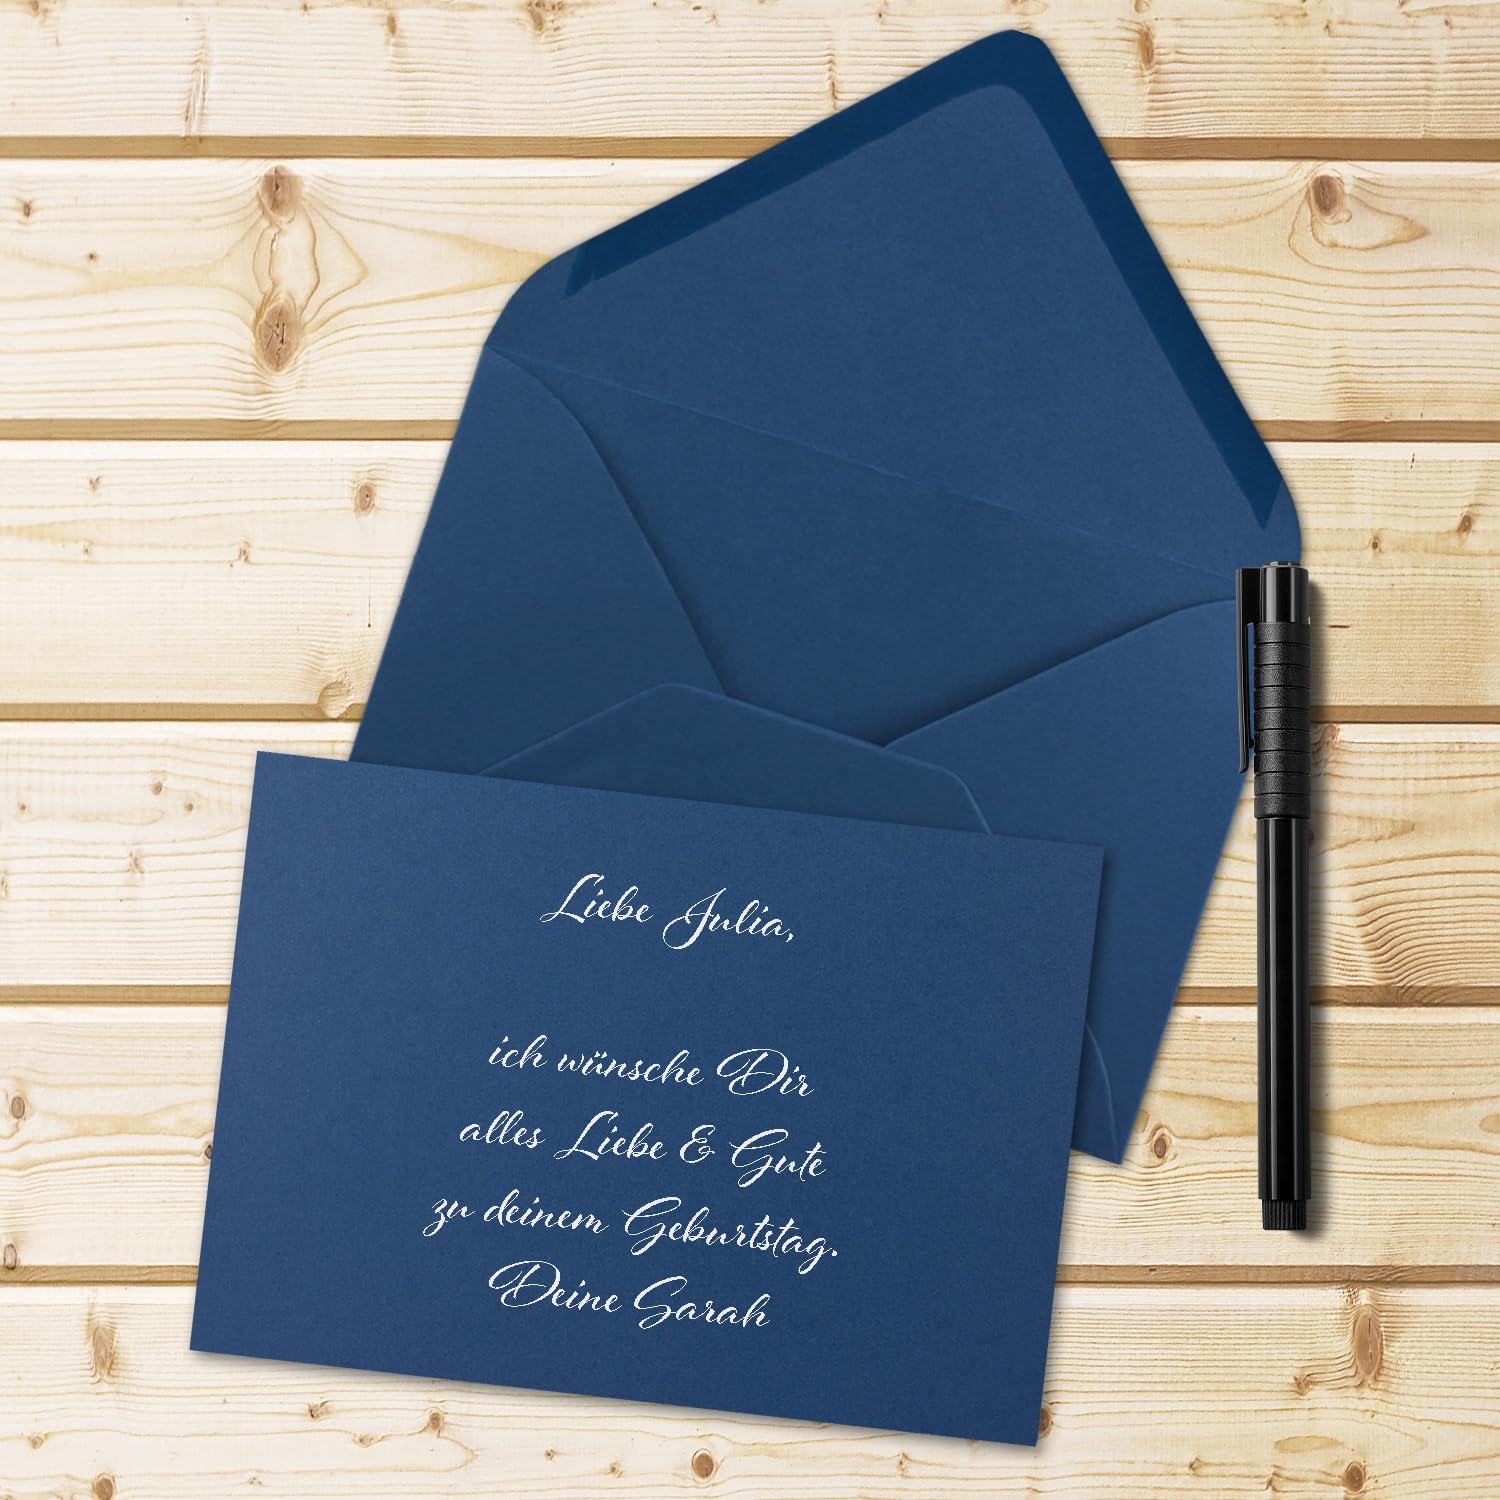 Liebe Julia,
ich wünsche Dir
alles Liebe & Gute
zu deinem Geburtstag.
Deine Sarah